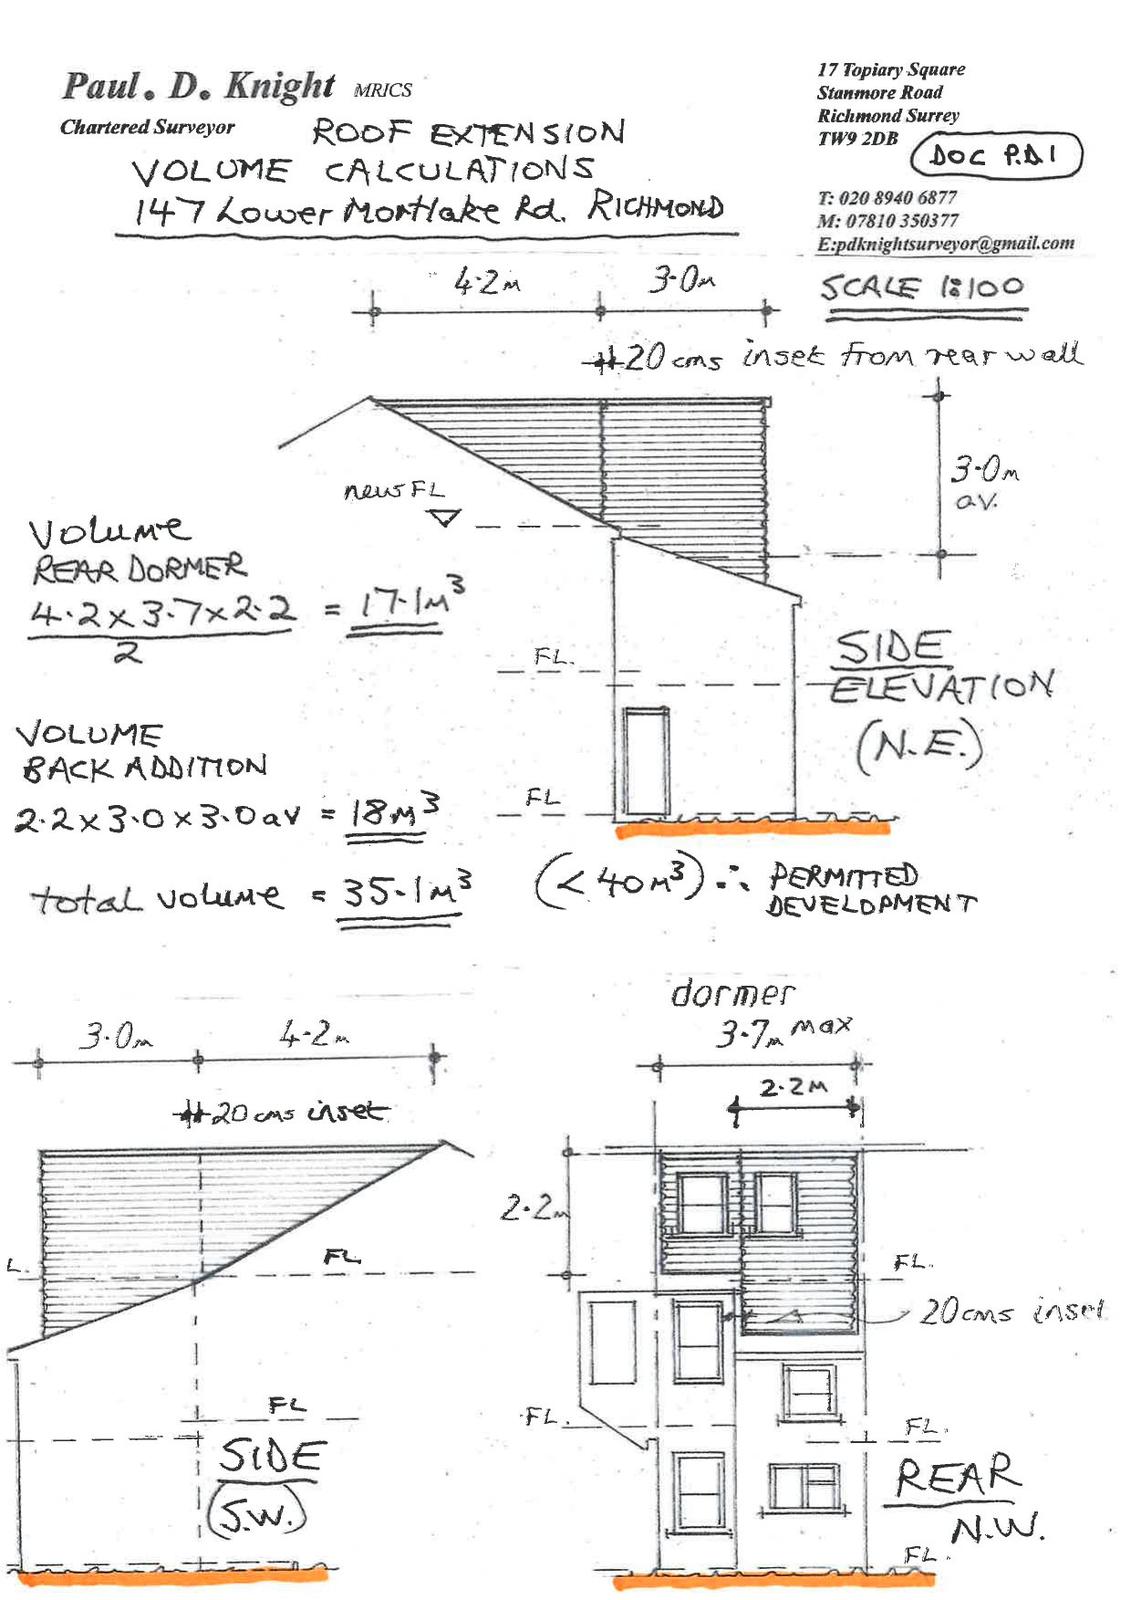 Paul. D. Knight MRICS
Chartered Surveyor
17 Topiary Square
Stanmore Road
Richmond Surrey
TW9 2DB
DOC P.D.1
T: 020 8940 6877
M: 07810 350377
E:pdknightsurveyor@gmail.com
ROOF EXTENSION
VOLUME CALCULATIONS
147 Lower Mortlake Rd. RICHMOND
SCALE 1:100
4.2m 3.0m
20 cms inset from rear wall
3.0m
av.
new FL
VOLUME
REAR DORMER
4.2 x 3.7 x 2.2 = 17.1m³
2
FL.
SIDE
ELEVATION
(N.E.)
VOLUME
BACK ADDITION
2.2 x 3.0 x 3.0 av = 18m³
FL
total volume = 35.1m³ (<40m³) ∴ PERMITTED
DEVELOPMENT
3.0m 4.2m
20 cms inset
L. FL
FL
SIDE
(S.W.)
dormer
3.7m max
2.2m
2.2m
FL.
20cms inset
FL.
FL.
REAR
N.W.
FL.